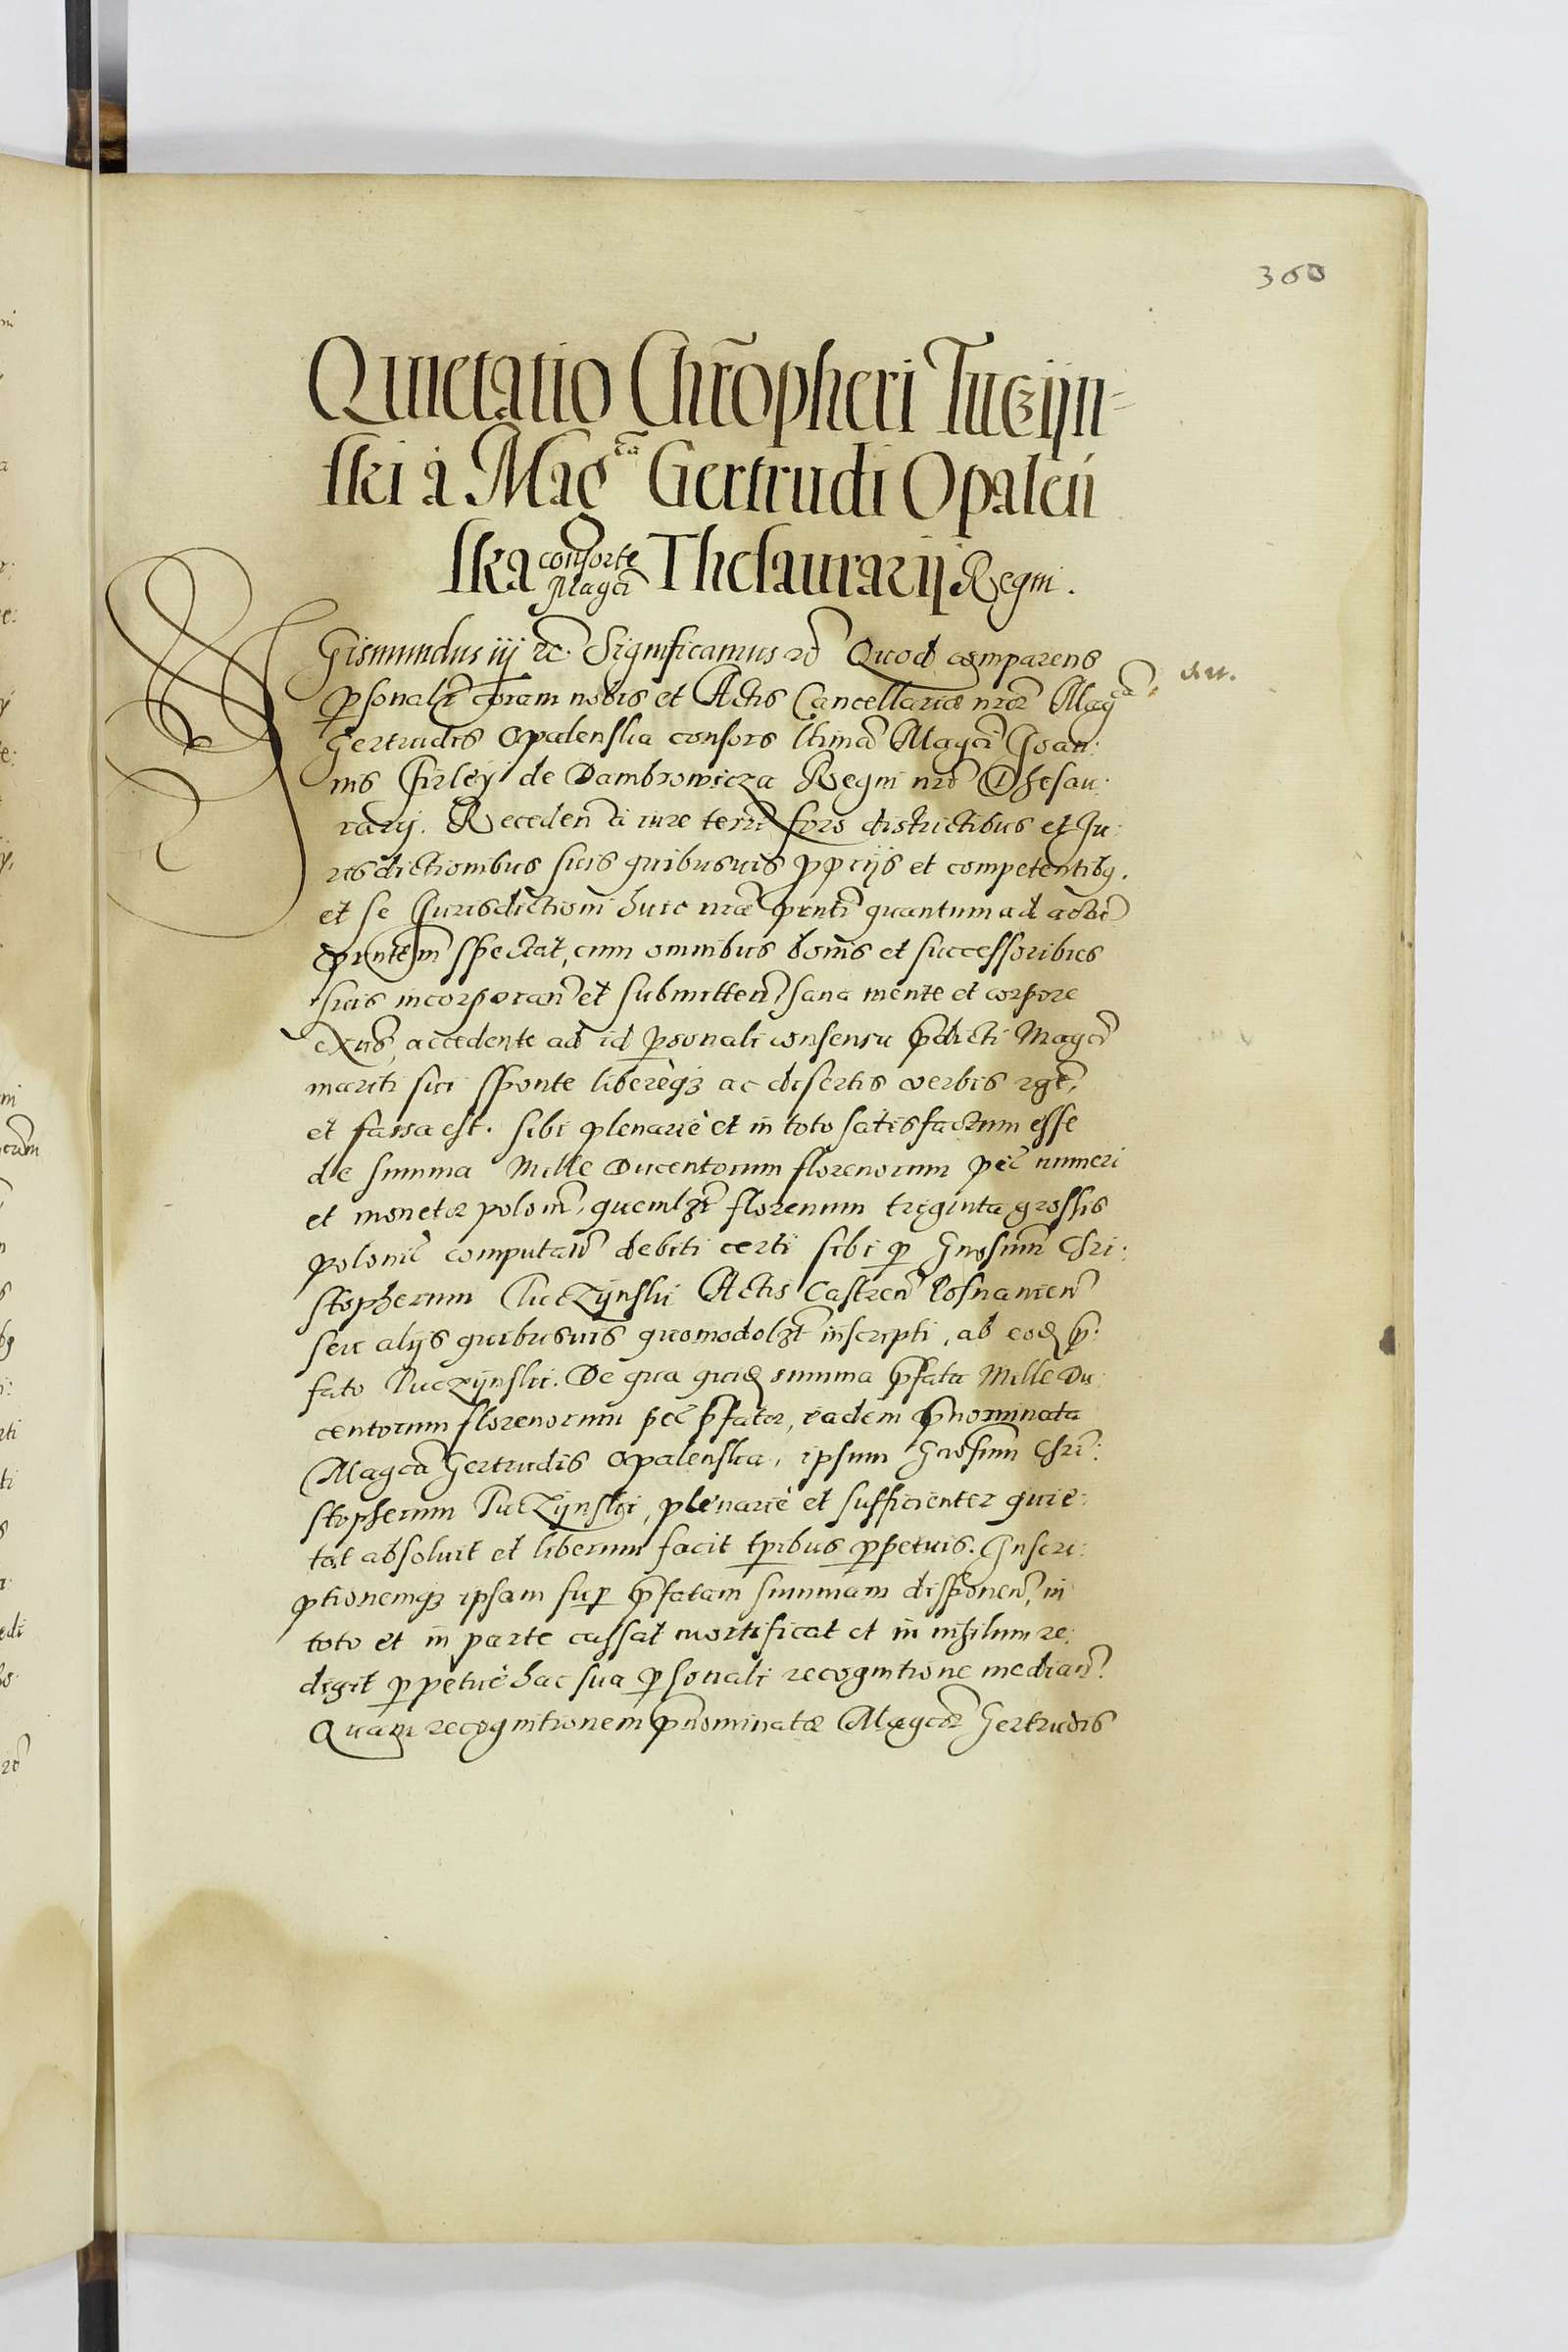 360
Quietatio Chrõpheri Tuczÿn=
ski à Mag^ca Gertrudi Opaleń
ska consorte Magci Thesaurarij Regni.
Sigismundus iij etc. Significamus etc. Quod comparens
personalr coram nobis et Actis Cancellariæ nræ Mag^ca
Gertrudis Opalenska consors ltima Magci Joan:
nis Firleÿ de Dambrowicza Regni nri Thesau:
rarij. Receden à iure terri foro districtibus et Ju:
risdictionibus suis quibusvis pprijs et competentibq.
et se Jurisdictioni huic nræ prnti quantum ad actum
prntem spectat, cum omnibus bonis et successoribus
suis incorporan et submitten, sana mente et corpore
exns, accedente ad id personali consensu prdicti Magci
mariti sui sponte liberèqz ac disertis verbis rgt,
et fassa est. sibi plenariè et in toto satisfactum esse
de summa Mille Ducentorum florenorum pec numeri
et monetæ polon, quemlzt florenum triginta grossis
polonic computan debiti certi sibi per Gnosum Chri:
stopherum Tuczÿnski Actis Castren Posnanien
seu alijs quibusvis quomodolzt inscripti, ab eod pr:
fato Tuczÿnski. De qua quid summa prfata Mille Du
centorum florenorum pec prfatæ, eadem prnominata
Magca Gertrudis Opalenska, ipsum Gnosum Chri:
stopherum Tuczÿnski, plenariè et sufficienter quie:
tat absoluit et liberum facit tpribus perpetuis. Inscri:
ptionemqz ipsam super prfatam summam disponen, in
toto et in parte cassat mortificat et in nihilum re:
digit perpetuè hac sua personali recognitione median.
Quam recognitionem prnominatæ Magcæ Gertrudis